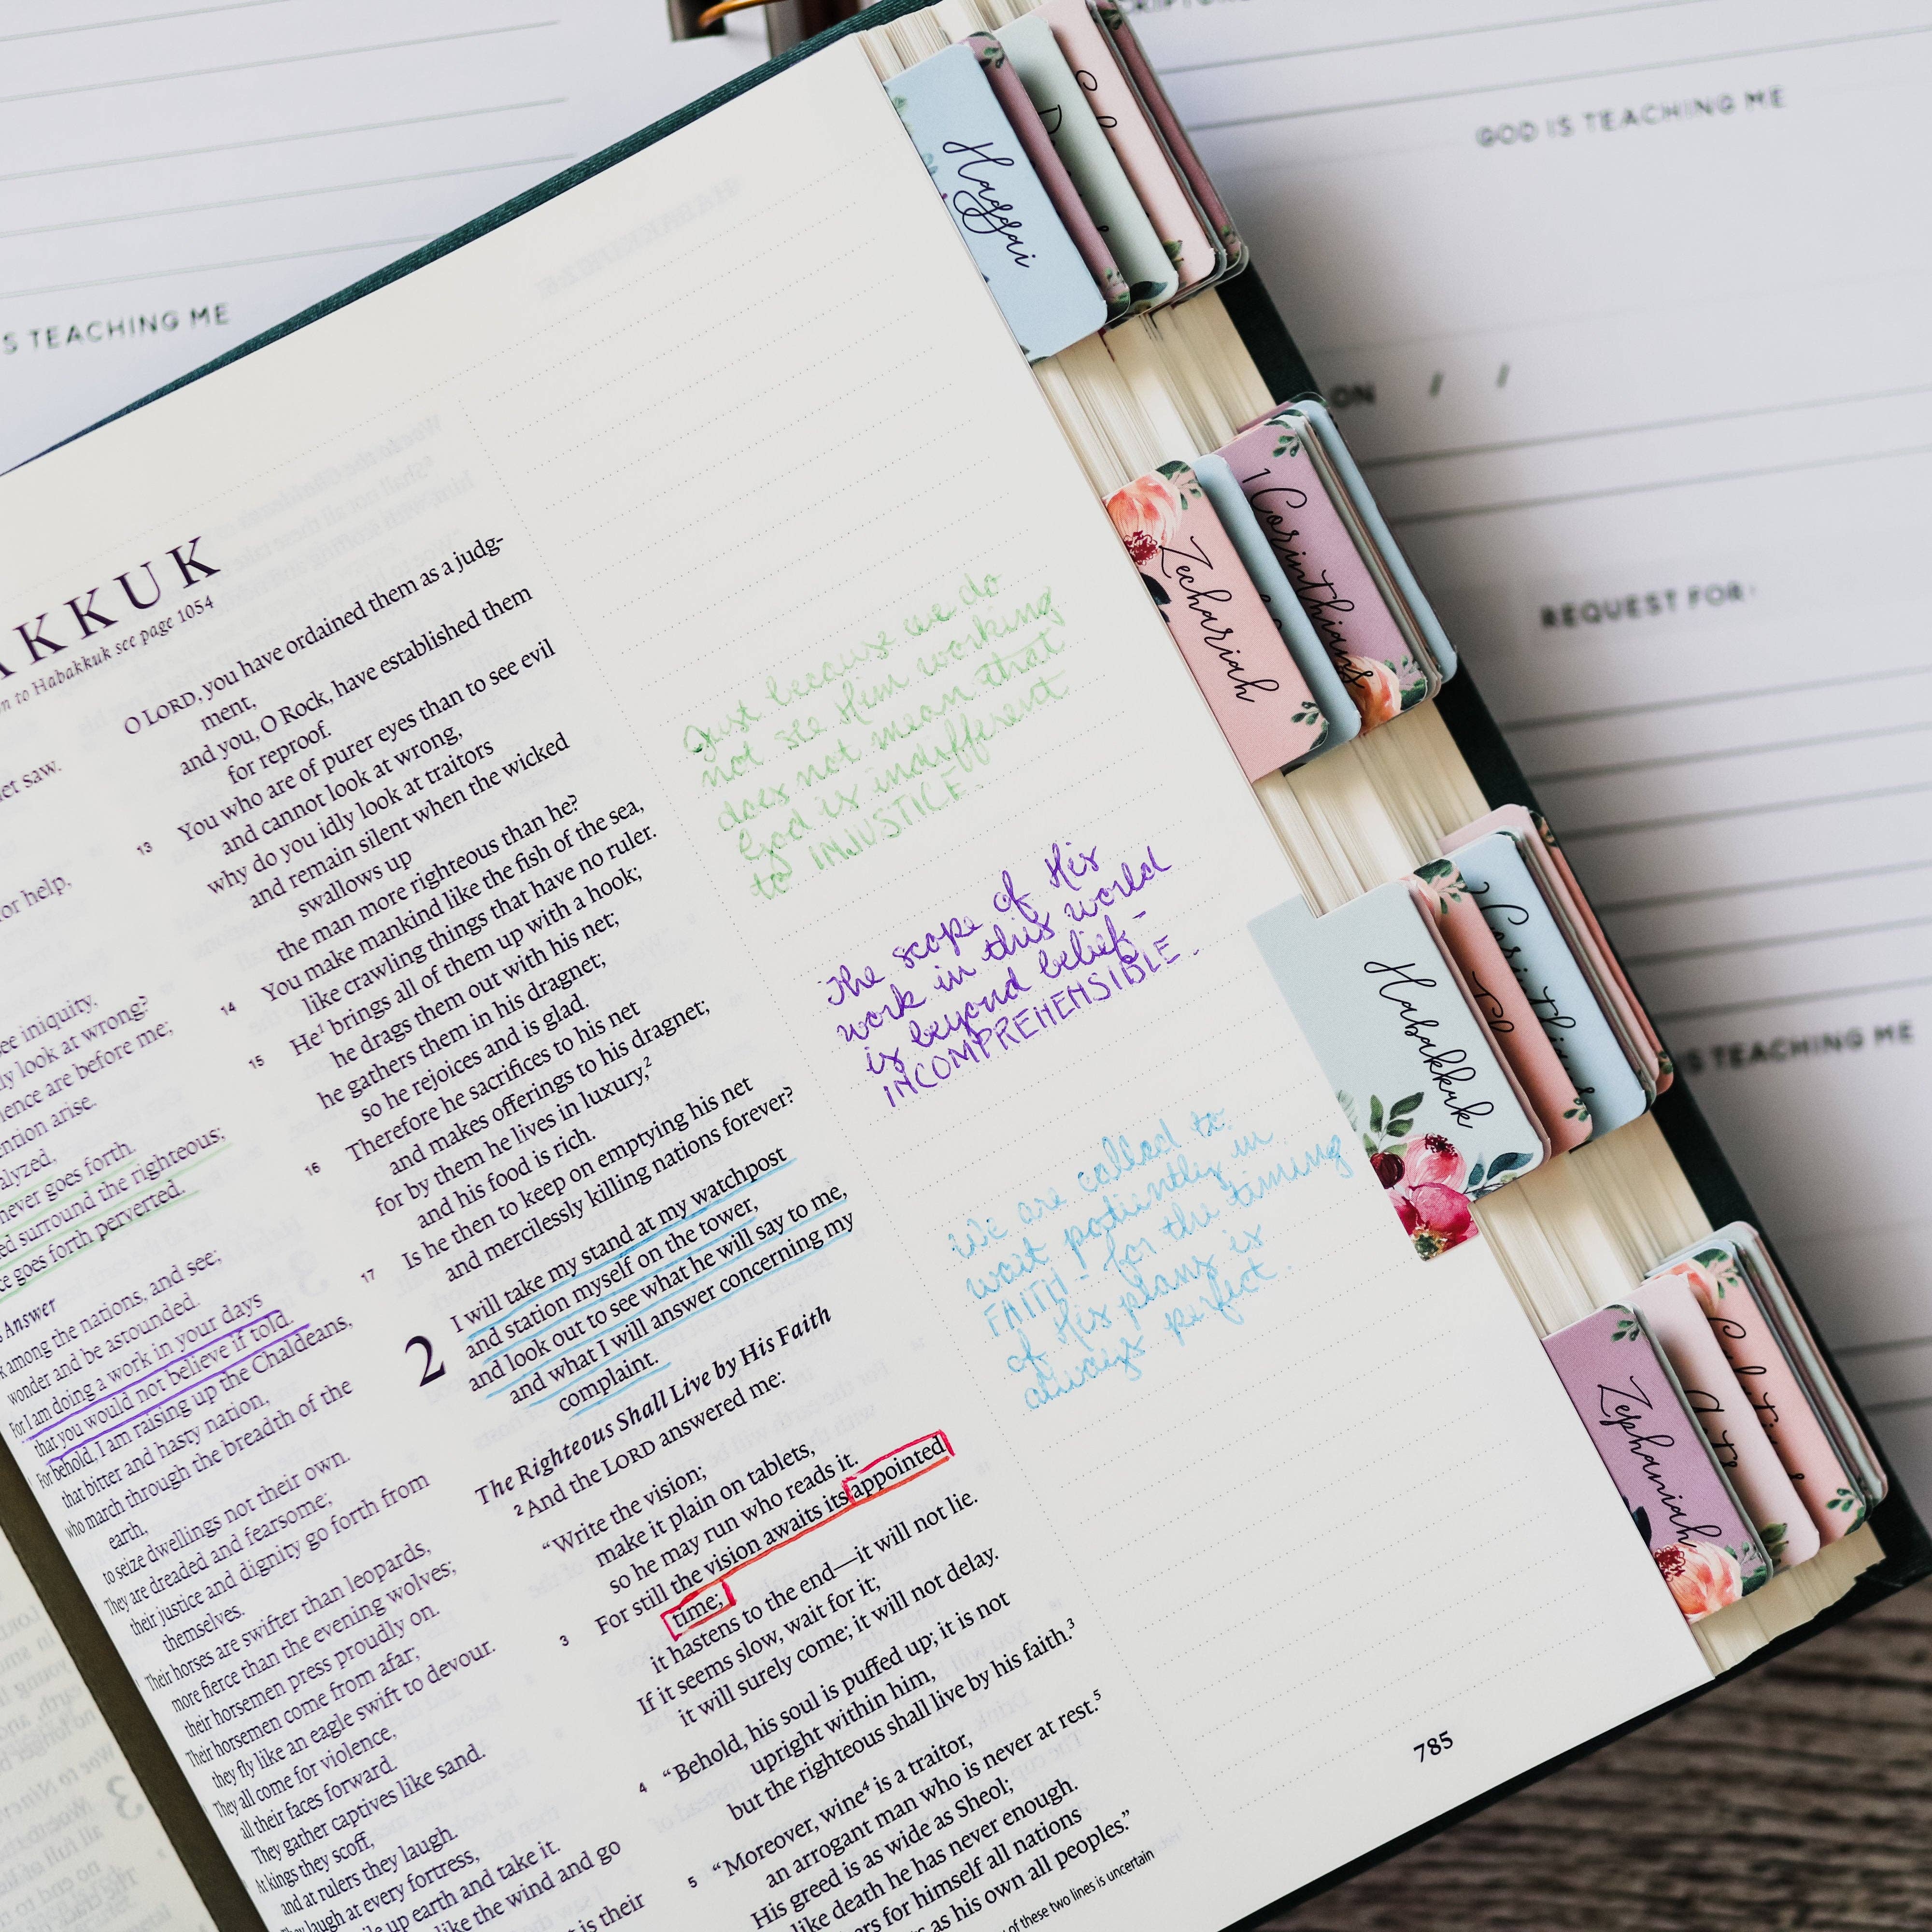 S TEACHING ME
GOD IS TEACHING ME
ON / /
REQUEST FOR:
IS TEACHING ME
Haggai
Zechariah
1 Corinthians
Habakkuk
Zephaniah
AKKUK
n to Habakkuk see page 1054
et saw.
or help,
ee iniquity,
ly look at wrong?
lence are before me;
ention arise.
alyzed,
never goes forth.
ed surround the righteous;
ce goes forth perverted.
Answer
k among the nations, and see;
wonder and be astounded.
For I am doing a work in your days
that you would not believe if told.
For behold, I am raising up the Chaldeans,
that bitter and hasty nation,
who march through the breadth of the
earth,
to seize dwellings not their own.
They are dreaded and fearsome;
their justice and dignity go forth from
themselves.
Their horses are swifter than leopards,
more fierce than the evening wolves;
their horsemen press proudly on.
Their horsemen come from afar;
they fly like an eagle swift to devour.
They all come for violence,
all their faces forward.
They gather captives like sand.
At kings they scoff,
and at rulers they laugh.
They laugh at every fortress,
le up earth and take it.
like the wind and go
t is their
O LORD, you have ordained them as a judg-
ment,
and you, O Rock, have established them
for reproof.
13 You who are of purer eyes than to see evil
and cannot look at wrong,
why do you idly look at traitors
and remain silent when the wicked
swallows up
the man more righteous than he?
14 You make mankind like the fish of the sea,
like crawling things that have no ruler.
15 He¹ brings all of them up with a hook;
he drags them out with his net;
he gathers them in his dragnet;
so he rejoices and is glad.
16 Therefore he sacrifices to his net
and makes offerings to his dragnet;
for by them he lives in luxury,²
and his food is rich.
17 Is he then to keep on emptying his net
and mercilessly killing nations forever?
2 I will take my stand at my watchpost
and station myself on the tower,
and look out to see what he will say to me,
and what I will answer concerning my
complaint.
The Righteous Shall Live by His Faith
² And the LORD answered me:
“Write the vision;
make it plain on tablets,
so he may run who reads it.
3 For still the vision awaits its appointed
time;
it hastens to the end—it will not lie.
If it seems slow, wait for it;
it will surely come; it will not delay.
4 “Behold, his soul is puffed up; it is not
upright within him,
but the righteous shall live by his faith.³
5 “Moreover, wine⁴ is a traitor,
an arrogant man who is never at rest.⁵
His greed is as wide as Sheol;
like death he has never enough.
ers for himself all nations
s as his own all peoples.”
of these two lines is uncertain
Just because we do
not see Him working
does not mean that
God is indifferent
to INJUSTICE.
The scope of His
work in this world
is beyond belief -
INCOMPREHENSIBLE.
We are called to
wait patiently in
FAITH - for the timing
of His plans is
always perfect.
785